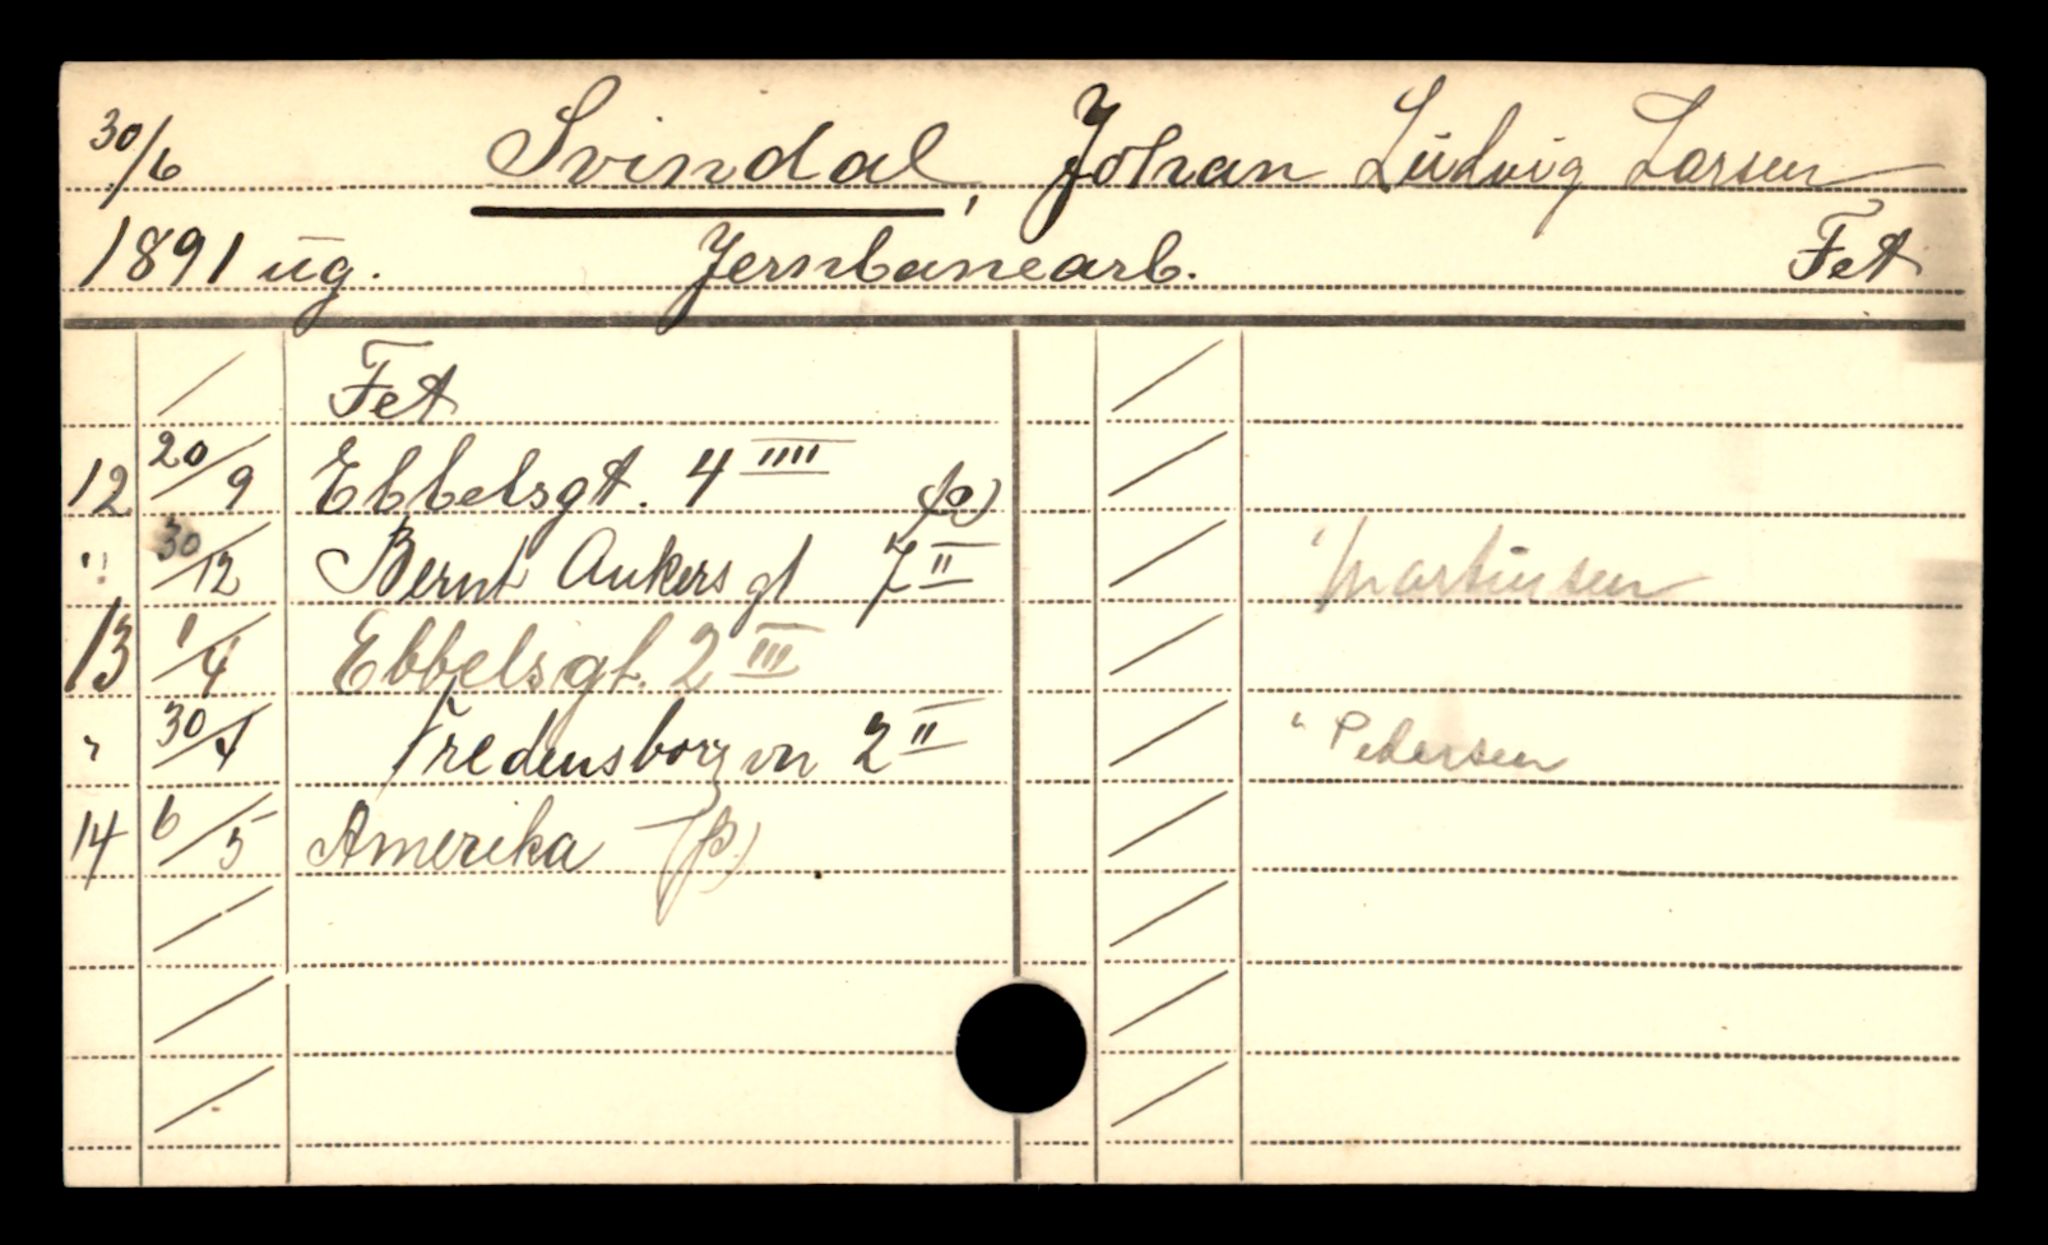 30/6 Svindal, Johan Ludvig Larsen
1891 ug. Jernbanearb. Fet
Fet
12 20/9 Ebbelsgt. 4 IIII (p)
" 30/12 Bernt Ankers gt 7 II " Martinsen
13 1/4 Ebbelsgt. 2 III
" 30/4 Fredensborgvn 2 II " Pedersen
14 6/5 Amerika (p.)